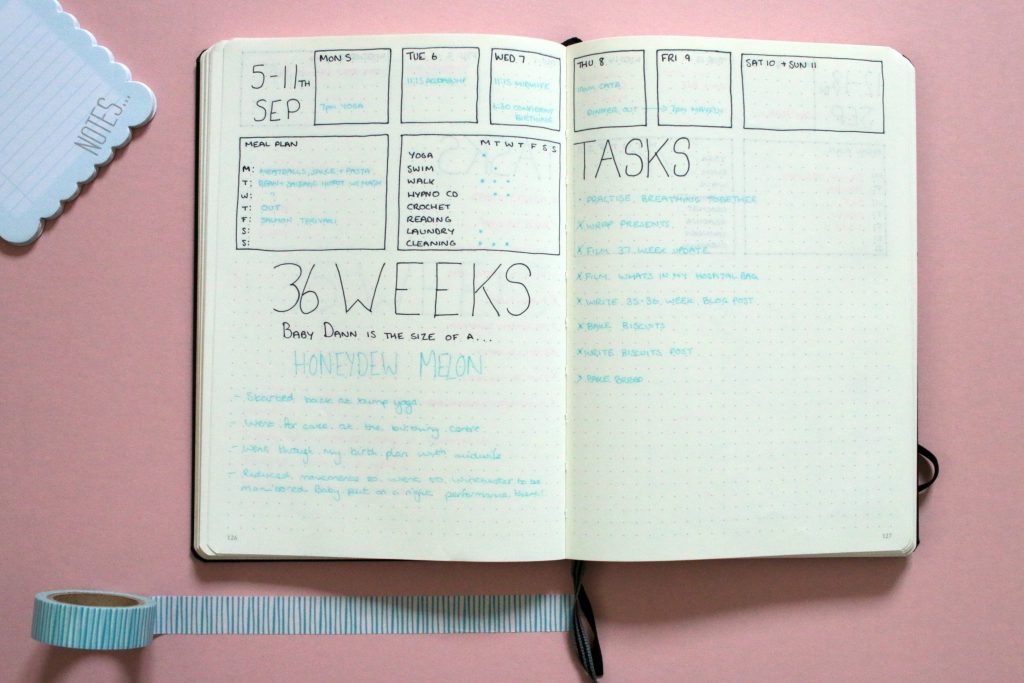 NOTES...
5-11TH
SEP
MON 5
7pm YOGA
TUE 6
11:15
WED 7
11:15 MIDWIFE
6:30 CONFIDENT
BIRTHING
THU 8
10am CATA
DINNER OUT
FRI 9
7pm
SAT 10 + SUN 11
MEAL PLAN
M: MEATBALLS, SAUCE + PASTA
T: BEAN + SAUSAGE HOTPOT W/ MASH
W: "
T: OUT
F: SALMON TERIYAKI
S:
S:
M T W T F S S
YOGA
SWIM
WALK
HYPNO CD
CROCHET
READING
LAUNDRY
CLEANING
36 WEEKS
BABY DANN IS THE SIZE OF A...
HONEYDEW MELON
- Started back at bump yoga.
- Went for cake at the birthing centre.
- Went through my birth plan with midwife
- Reduced movements so went to Winchester to be
monitored. Baby put on a right performance,
126
TASKS
· PRACTISE BREATHING TOGETHER
X WRAP PRESENTS
X FILM 37 WEEK UPDATE
X FILM WHATS IN MY HOSPITAL BAG
X WRITE 35-36 WEEK BLOG POST
X BAKE BISCUITS
X WRITE BISCUITS POST
> BAKE BREAD
127